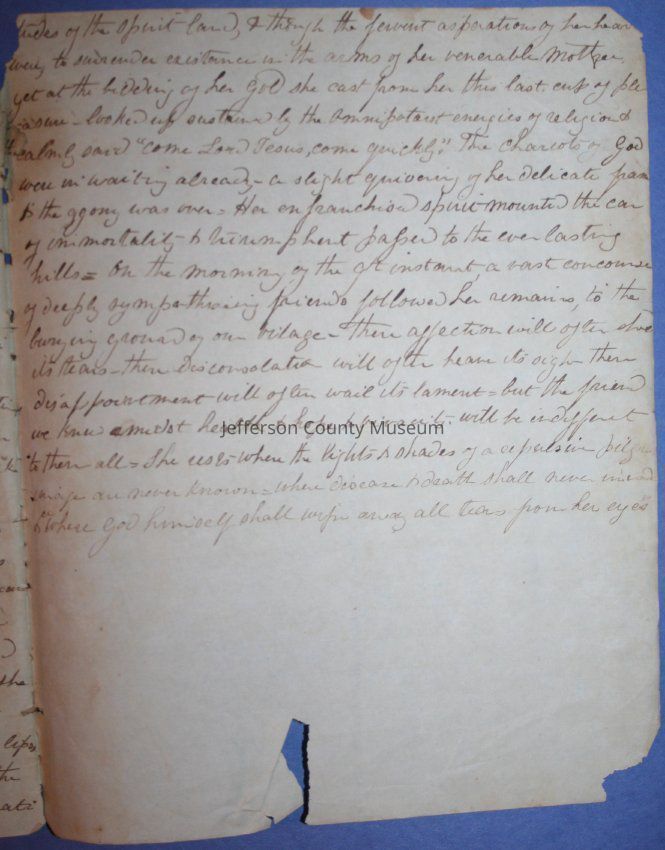 tudes of the spirit land, & though the fervent asperations of her hear
were, to surrender existence in the arms of her venerable Mother,
yet at the bidding of her God she cast from her this last cup of ple
asure - looked up sustained by the Omnipotent energies of religion &
calmly said "Come Lord Jesus, come quickly". The chariots of God
were in waiting already - a slight quivering of her delicate fram
& the agony was over = Her enfranchised spirit mounted the car
of immortality & triumphent passed to the everlasting
hills = On the morning of the instant, a vast concourse
of deeply sympathising friends followed her remains, to the
burying ground of our village - there affection will often shed
its tears - there disconsolation will often heave its sigh - there
disappointment will often wail its lament = but the friend
we knew amidst health & will be indifferent
to them all = She rests where the lights & shades of a pilgri
mage are never known = where disease & death shall never invade
& "where God himself shall wipe away all tears from her eyes"
Jefferson County Museum
she
lips
the